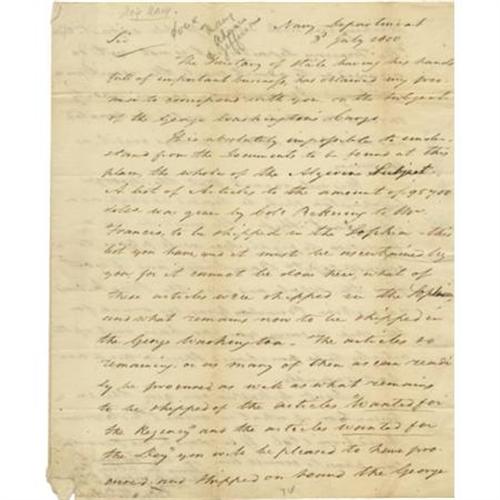 Navy Department
3d July 1800
Sir
The Secretary of State having his hands
full of important business, has obtained my pro-
mise to correspond with you on the subject
of the George Washingtons Cargo
It is absolutely impossible to under-
stand from the Documents to be found at this
place, the whole of the Algerine Subject.
A list of Articles to the amount of
was given by Colo Pickering to Mr
Francis, to be shipped in the Sophia - this
list you have and it must be ascertained by
you, for it cannot be done here, what of
these articles were shipped in the Sophia
and what remains now to be shipped in
the George Washington. The articles so
remaining, or as many of them as can readi-
ly be procured as well as what remains
to be shipped of the articles "Wanted for
the Regency" and the articles "wanted for
the Dey" you will be pleased to have pro-
cured and shipped on board the George